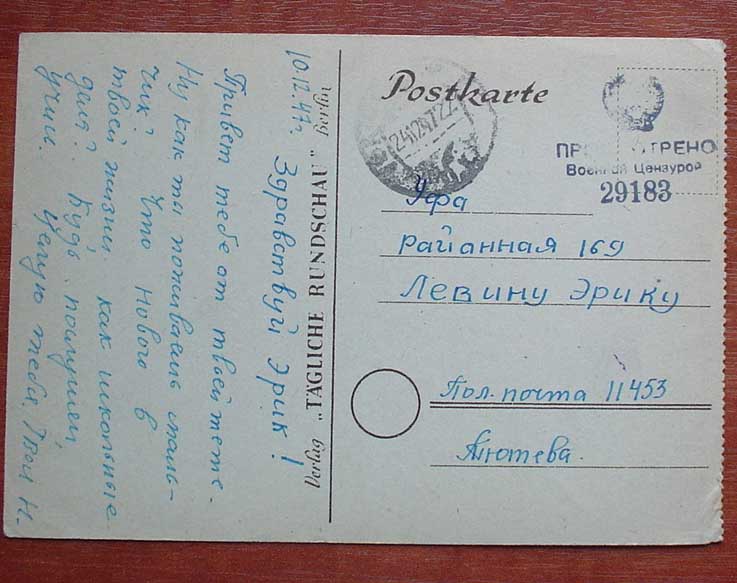 10.12.47г.
Здравствуй Эрик!
Привет тебе от твоей тете-
Ну как ты поживаешь маль-
чик? Что Нового в
твоей жизни. как школьные
дела? Будь
Целую тебя. Твоя Н.
Verlag „TÄGLICHE RUNDSCHAU" Berlin
Postkarte
24.12.47.22
ПРОСМОТРЕНО
Военной Цензурой
29183
Уфа
Районная 169
Левину Эрику
Пол. почта 11453